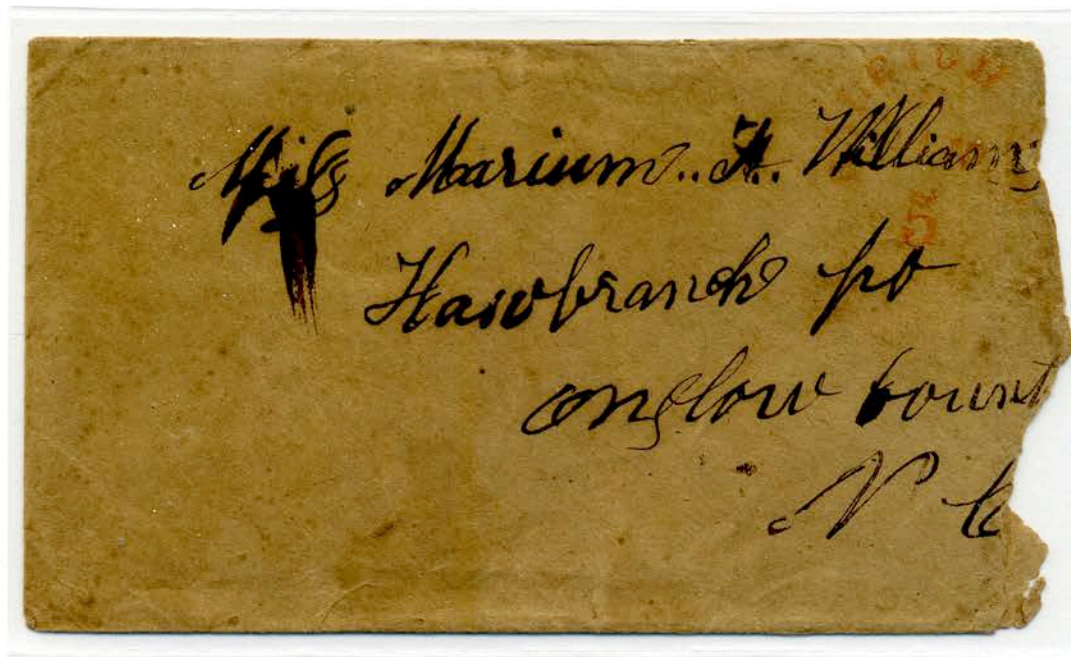 Miss Marium.. A. Williams
5
Hawbranch po
onslow count
N C